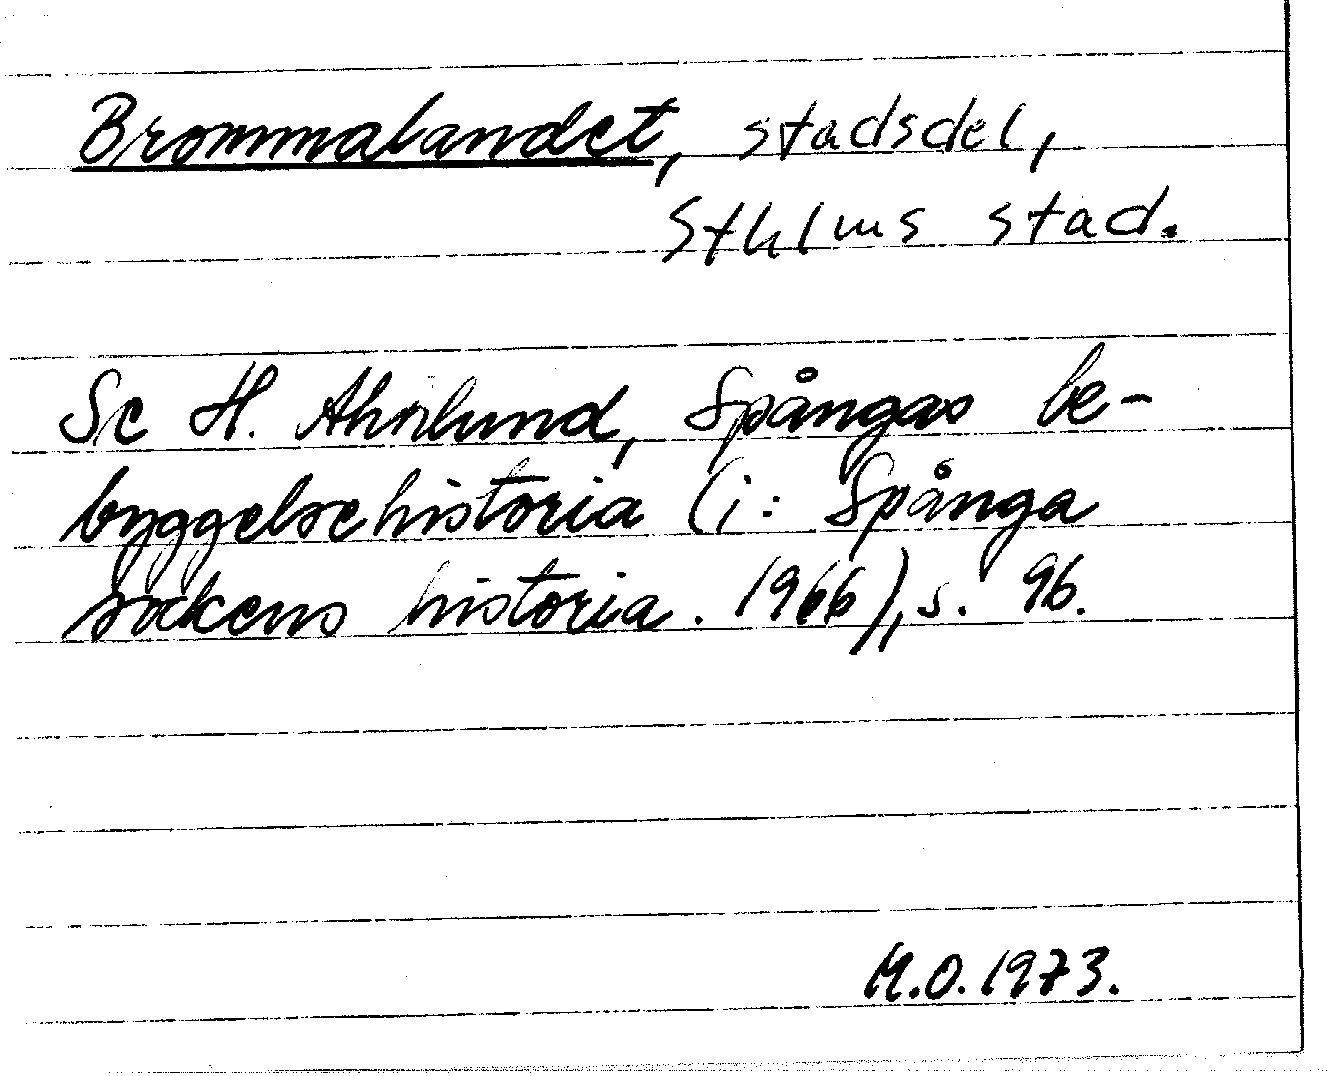 Brommalandet, stadsdel,
Sthlms stad.
Se H. Ahnlund, Spångas be-
byggelsehistoria (i: Spånga
sockens historia. 1966), s. 96.
M.O. 1973.